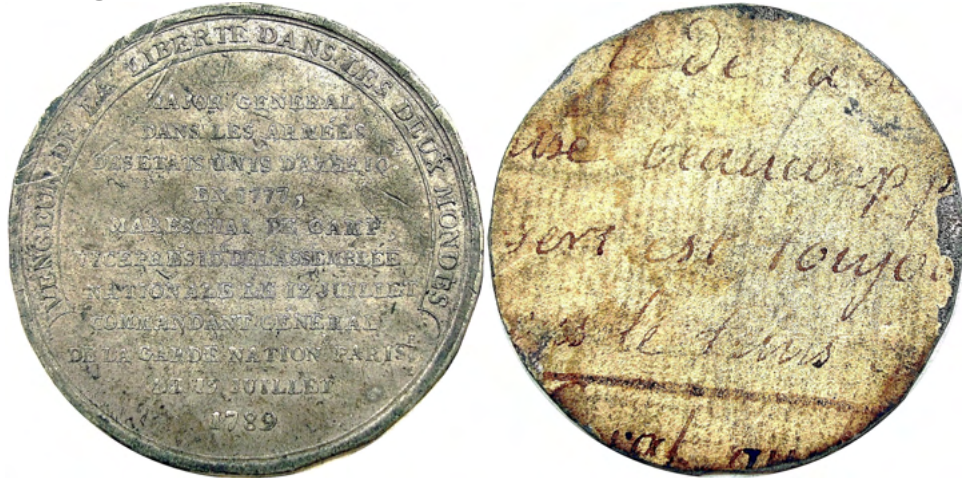 VENGEUR DE LA LIBERTÉ DANS LES DEUX MONDES
MAJOR GENERAL
DANS LES ARMÉES
DES ETATS UNIS D'AMERIQ.
EN 1777,
MARESCHAL DE CAMP,
VICE PRESID. DE L'ASSEMBLÉE
NATIONALE LE 12 JUILLET
COMMANDANT GENERAL
DE LA GARDE NATION. PARIS.E
LE 15 JUILLET
1789
de la
beaucoup p
sert est toujou
le